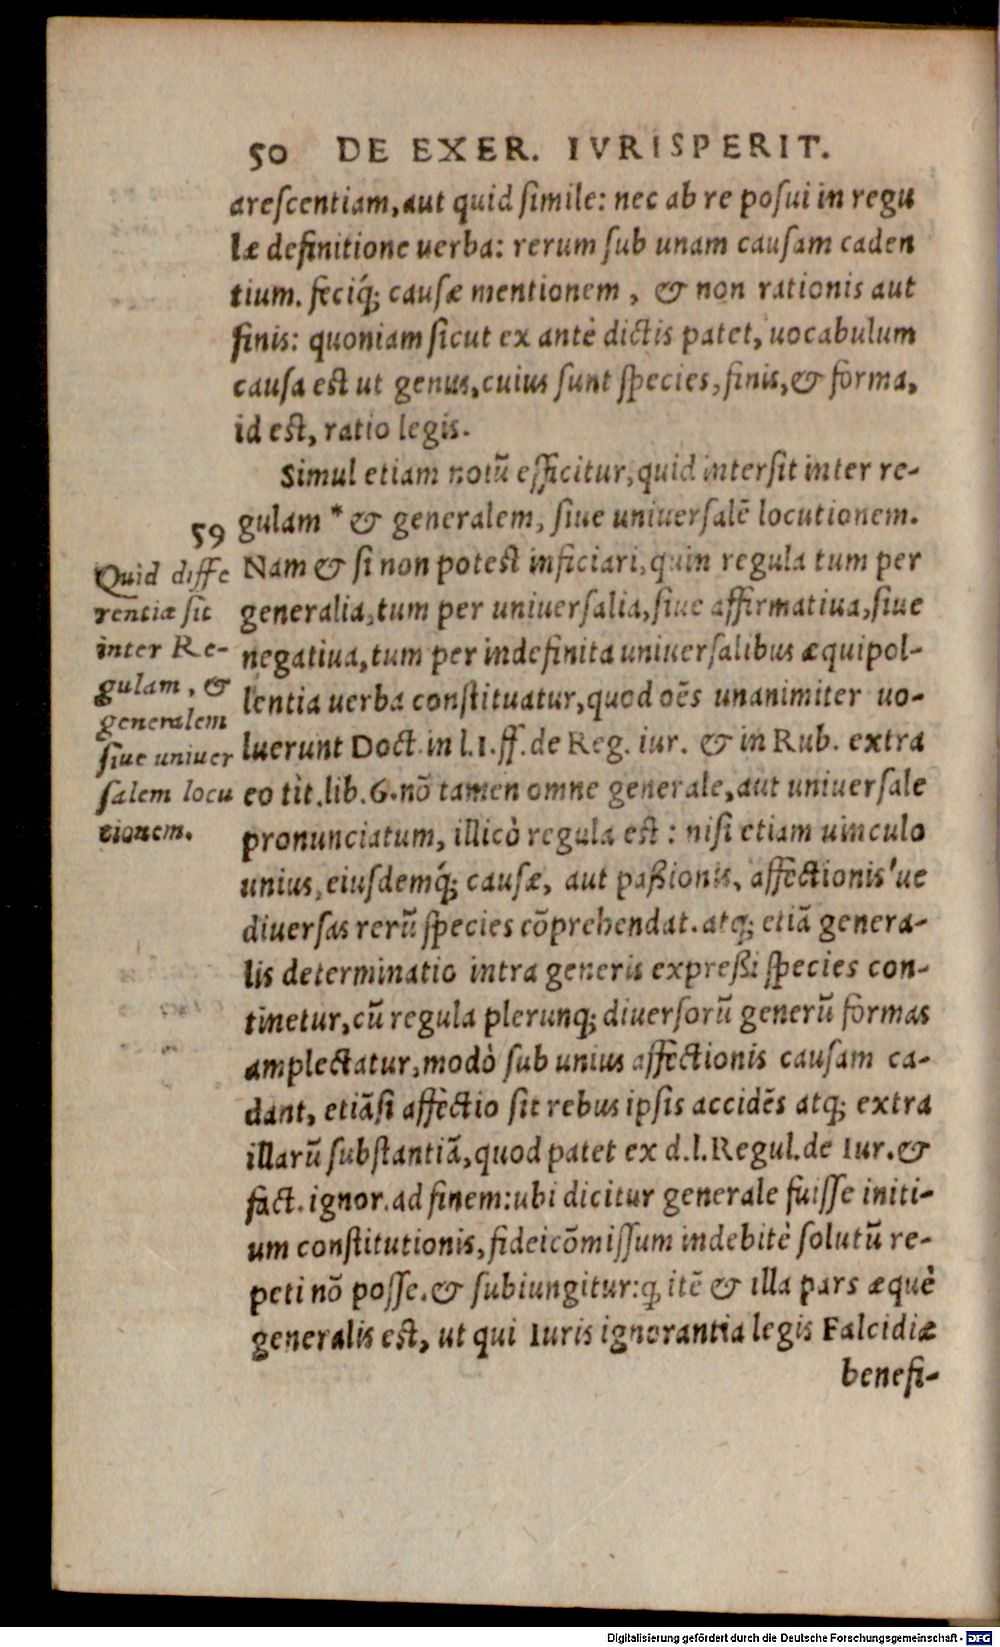 50 DE EXER. IVRISPERIT.
arescentiam, aut quid simile: nec ab re posui in regu
læ definitione uerba: rerum sub unam causam caden
tium. feciq́; causæ mentionem, & non rationis aut
finis: quoniam sicut ex antè dictis patet, uocabulum
causa est ut genus, cuius sunt species, finis, & forma,
id est, ratio legis.
Simul etiam notũ efficitur, quid intersit inter re-
gulam * & generalem, siue uniuersalẽ locutionem.
Nam & si non potest inficiari, quin regula tum per
generalia, tum per uniuersalia, siue affirmatiua, siue
negatiua, tum per indefinita uniuersalibus æquipol-
lentia uerba constituatur, quod oẽs unanimiter uo-
luerunt Doct. in l.1.ff.de Reg. iur. & in Rub. extra
eo tit.lib.6.nõ tamen omne generale, aut uniuersale
pronunciatum, illicò regula est: nisi etiam uinculo
unius, eiusdemq́; causæ, aut paßionis, affectionis'ue
diuersas rerũ species cõprehendat. atq; etiã genera-
lis determinatio intra generis expreßi species con-
tinetur, cũ regula plerunq; diuersorũ generũ formas
amplectatur, modò sub unius affectionis causam ca-
dant, etiãsi affectio sit rebus ipsis accidẽs atq; extra
illarũ substantiã, quod patet ex d.l.Regul.de Iur. &
fact. ignor. ad finem: ubi dicitur generale fuisse initi-
um constitutionis, fideicõmissum indebitè solutũ re-
peti nõ posse. & subiungitur: ꝗ itẽ & illa pars æquè
generalis est, ut qui Iuris ignorantia legis Falcidiæ
benefi-
59
Quid diffe
rentiæ sit
inter Re-
gulam, &
generalem
siue uniuer
salem locu
tionem.
Digitalisierung gefördert durch die Deutsche Forschungsgemeinschaft - DFG